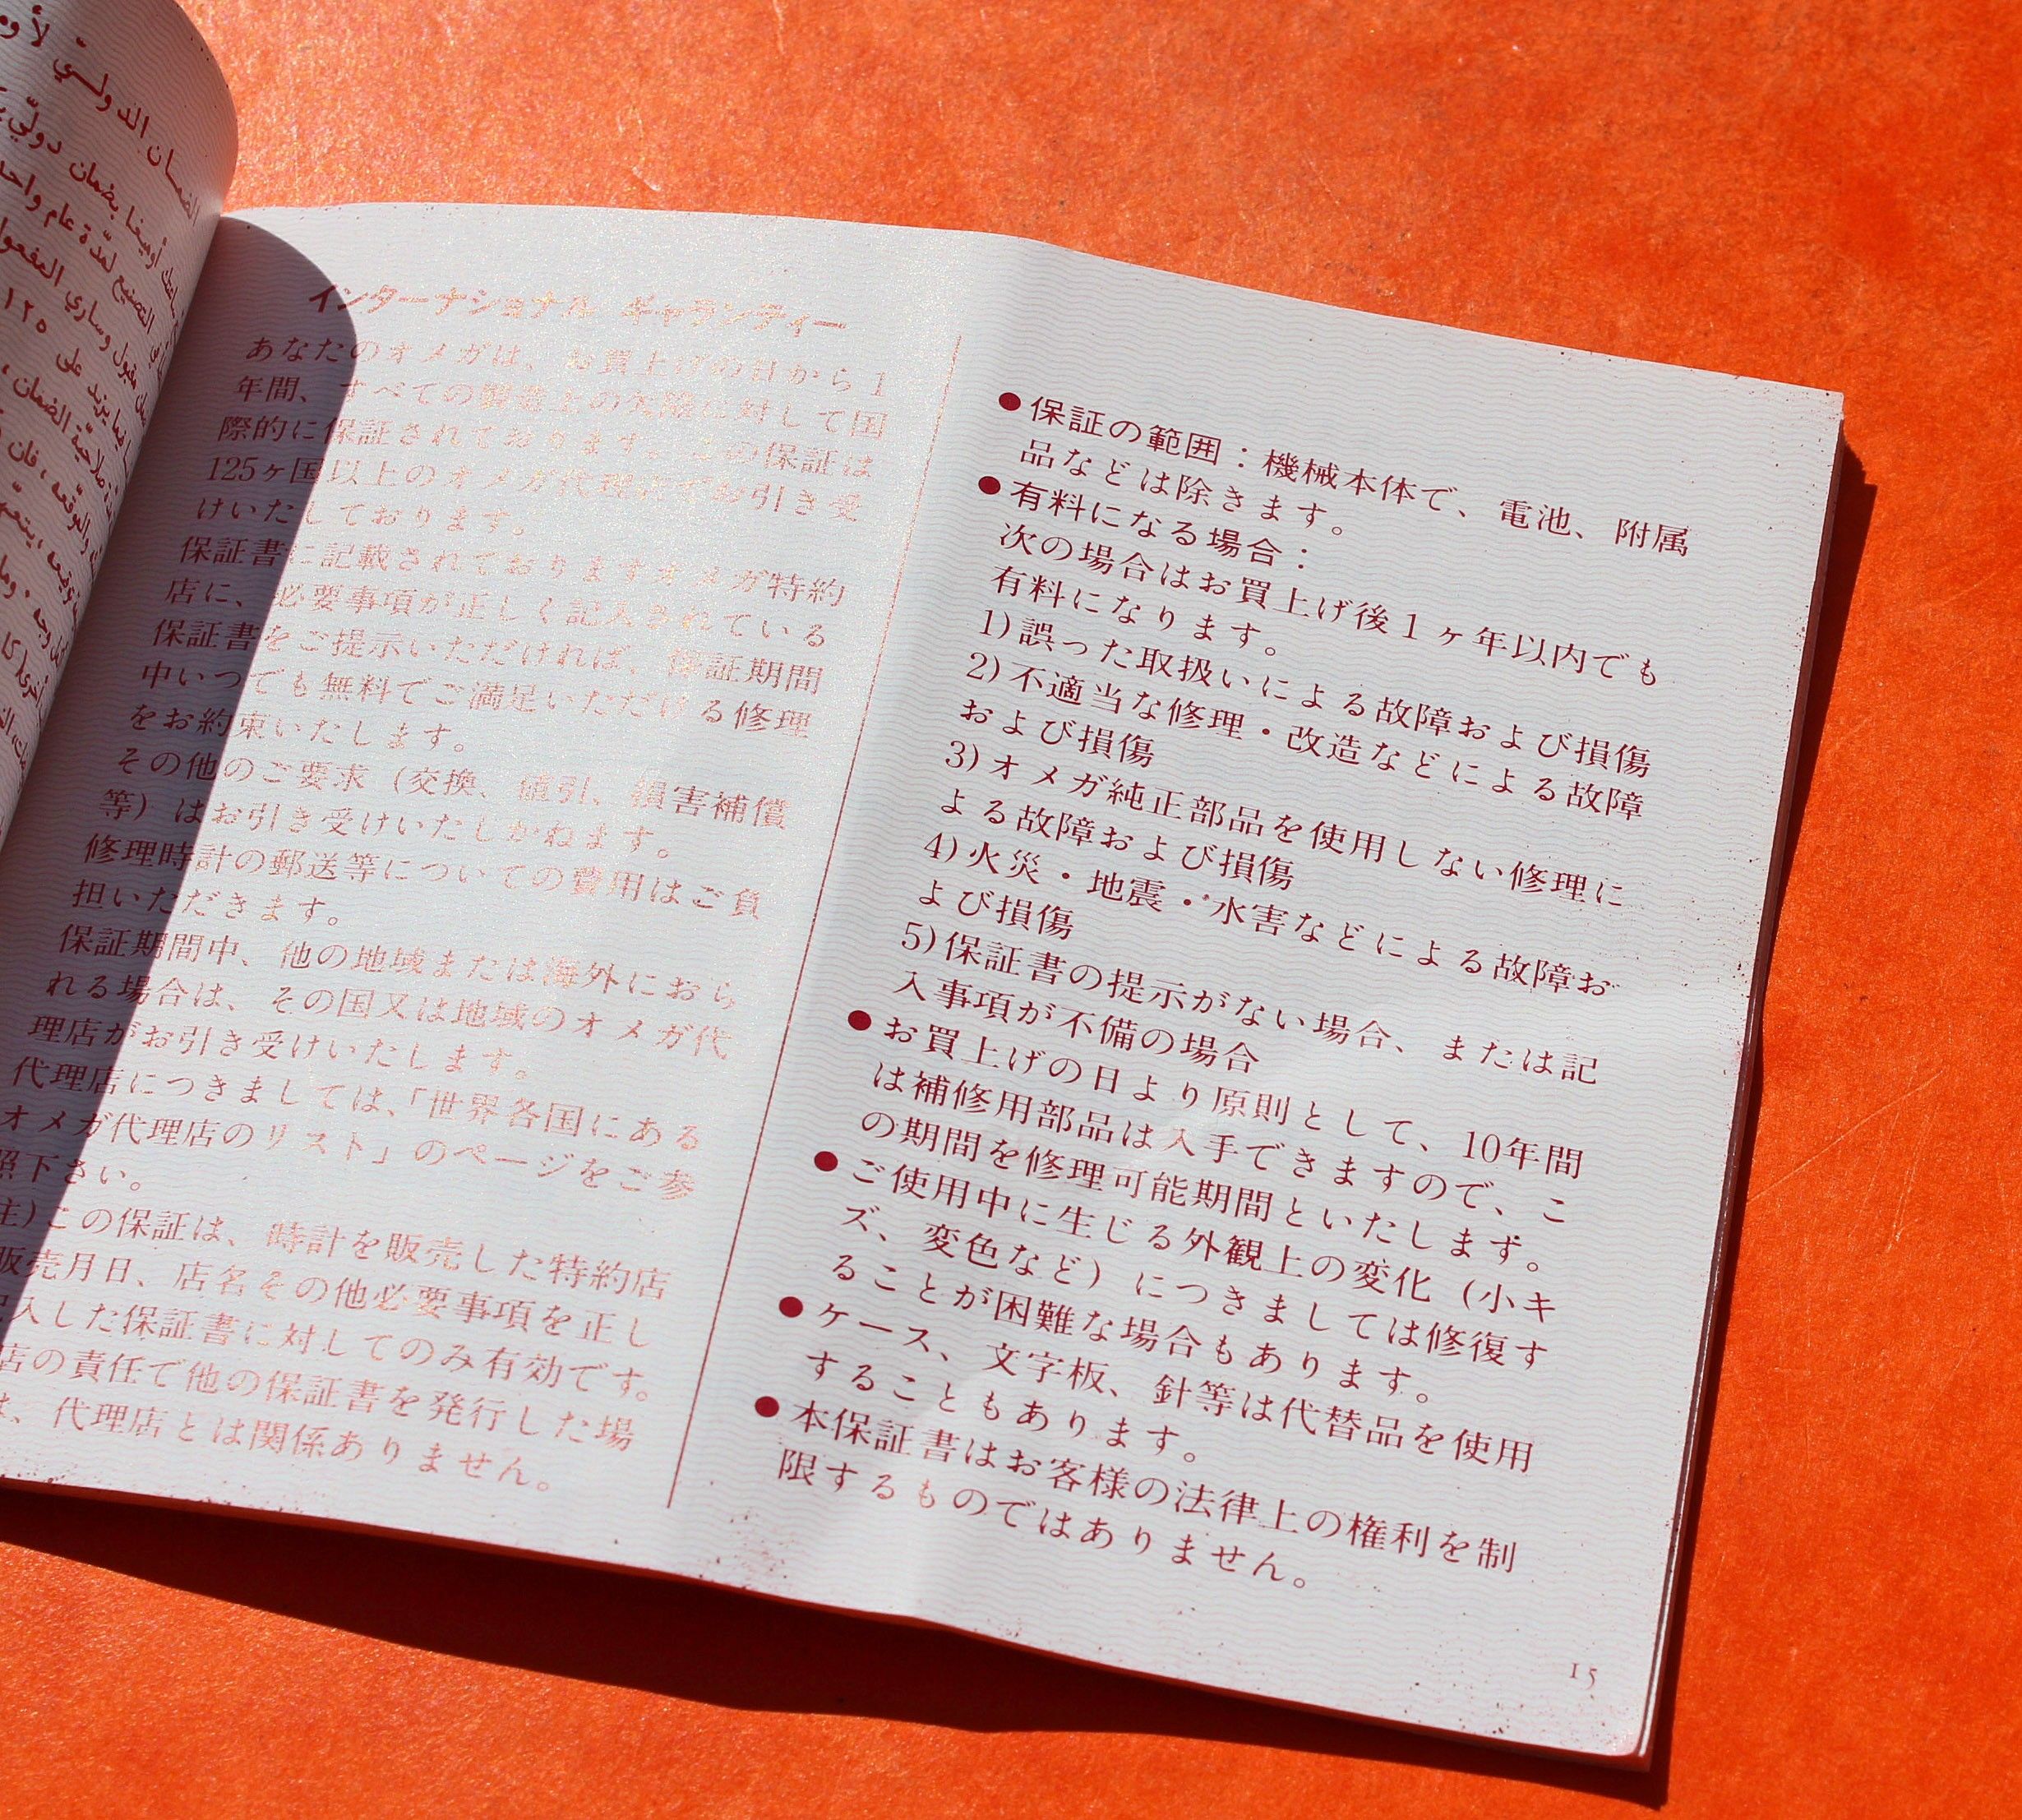 الضمان الدولي لأوميغا
インターナショナル ギャランティー
あなたのオメガは、お買上げの日から1
年間、すべての製造上の欠陥に対して国
際的に保証されております。この保証は
125ヶ国以上のオメガ代理店でお引き受
けいたしております。
保証書に記載されておりますオメガ特約
店に、必要事項が正しく記入されている
保証書をご提示いただければ、保証期間
中いつでも無料でご満足いただける修理
をお約束いたします。
その他のご要求（交換、値引、損害補償
等）はお引き受けいたしかねます。
修理時計の郵送等についての費用はご負
担いただきます。
保証期間中、他の地域または海外におら
れる場合は、その国又は地域のオメガ代
理店がお引き受けいたします。
代理店につきましては、「世界各国にある
オメガ代理店のリスト」のページをご参
照下さい。
注)この保証は、時計を販売した特約店
販売月日、店名その他必要事項を正し
記入した保証書に対してのみ有効です。
店の責任で他の保証書を発行した場
は、代理店とは関係ありません。
●保証の範囲：機械本体で、電池、附属
品などは除きます。
●有料になる場合：
次の場合はお買上げ後1ヶ年以内でも
有料になります。
1)誤った取扱いによる故障および損傷
2)不適当な修理・改造などによる故障
および損傷
3)オメガ純正部品を使用しない修理に
よる故障および損傷
4)火災・地震・水害などによる故障お
よび損傷
5)保証書の提示がない場合、または記
入事項が不備の場合
●お買上げの日より原則として、10年間
は補修用部品は入手できますので、こ
の期間を修理可能期間といたします。
●ご使用中に生じる外観上の変化（小キ
ズ、変色など）につきましては修復す
ることが困難な場合もあります。
●ケース、文字板、針等は代替品を使用
することもあります。
●本保証書はお客様の法律上の権利を制
限するものではありません。
15